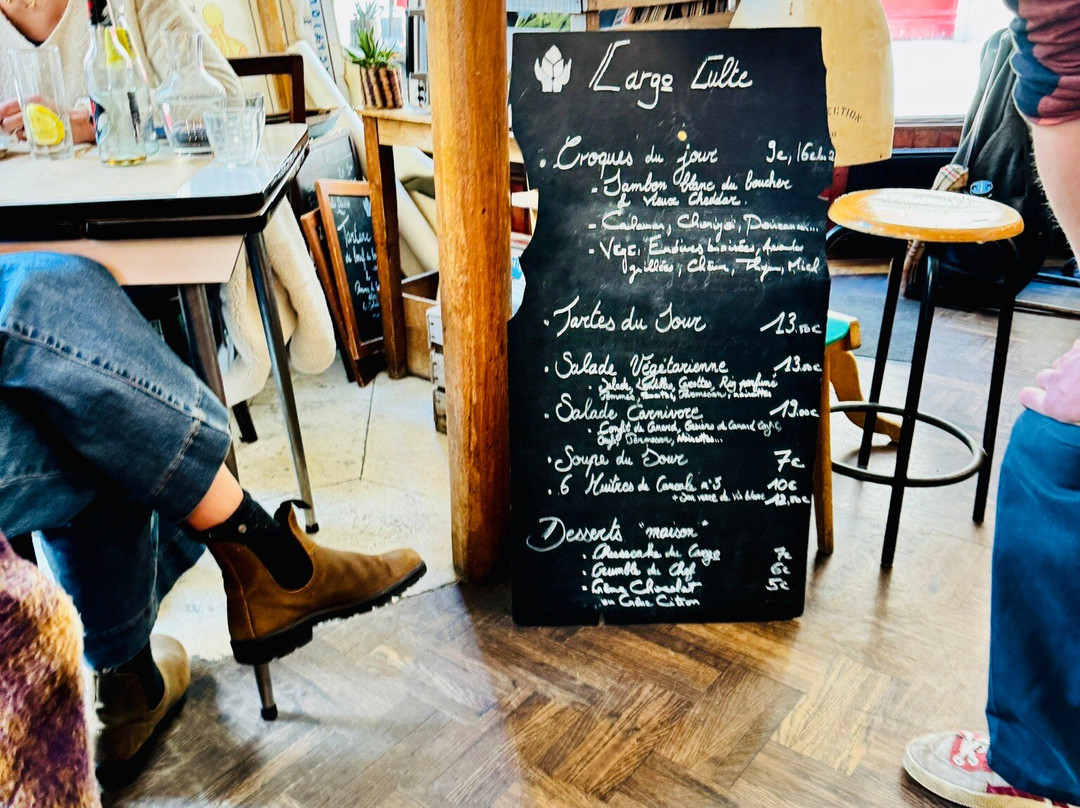 Cargo Culte
• Croques du jour 9€, 16€
- Jambon blanc du boucher
& vieux Cheddar.
- Calamar, Chorizo,
- Végé: Endives braisées,
grillées, Chèvre, Thym, Miel
• Tartes du Jour 13.50€
• Salade Végétarienne 13.00€
• Salade, Lentilles, Carottes, Riz parfumé
Pommes, Tomates, Parmesan, noisettes
• Salade Carnivore 19.00€
• Confit de Canard, Gésiers de Canard Confit,
Oeuf, Parmesan, Noisettes...
• Soupe du Jour 7€
• 6 Huitres de Cancale n°3 10€
+ Son verre de vin blanc 12,50€
Desserts "maison"
• Cheesecake du Cargo 7€
• Crumble du Chef 6€
• Crème Chocolat 5€
ou Crème Citron
Tartare